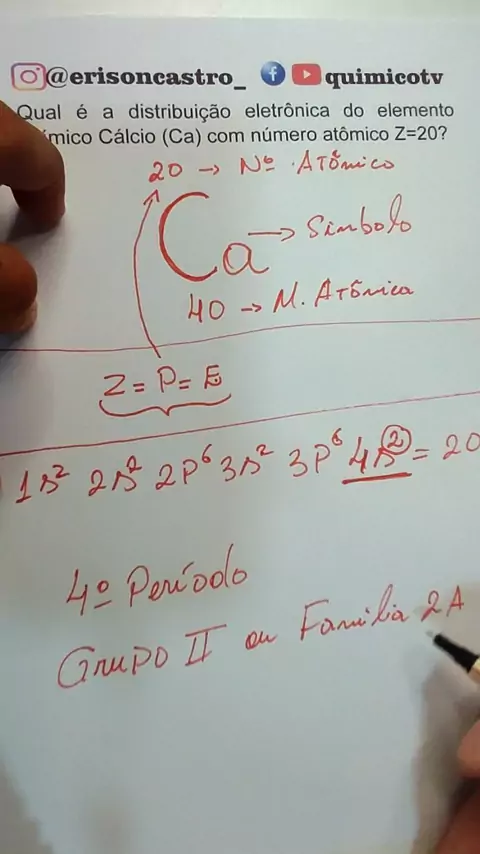 @erisoncastro_ quimicotv
Qual é a distribuição eletrônica do elemento
mico Cálcio (Ca) com número atômico Z=20?
20 → Nº Atômico
Ca → Simbolo
40 → M. Atômica
Z = P = E
1s² 2s² 2p⁶ 3s² 3p⁶ 4s² = 20
4º Período
Grupo II ou Familia 2A